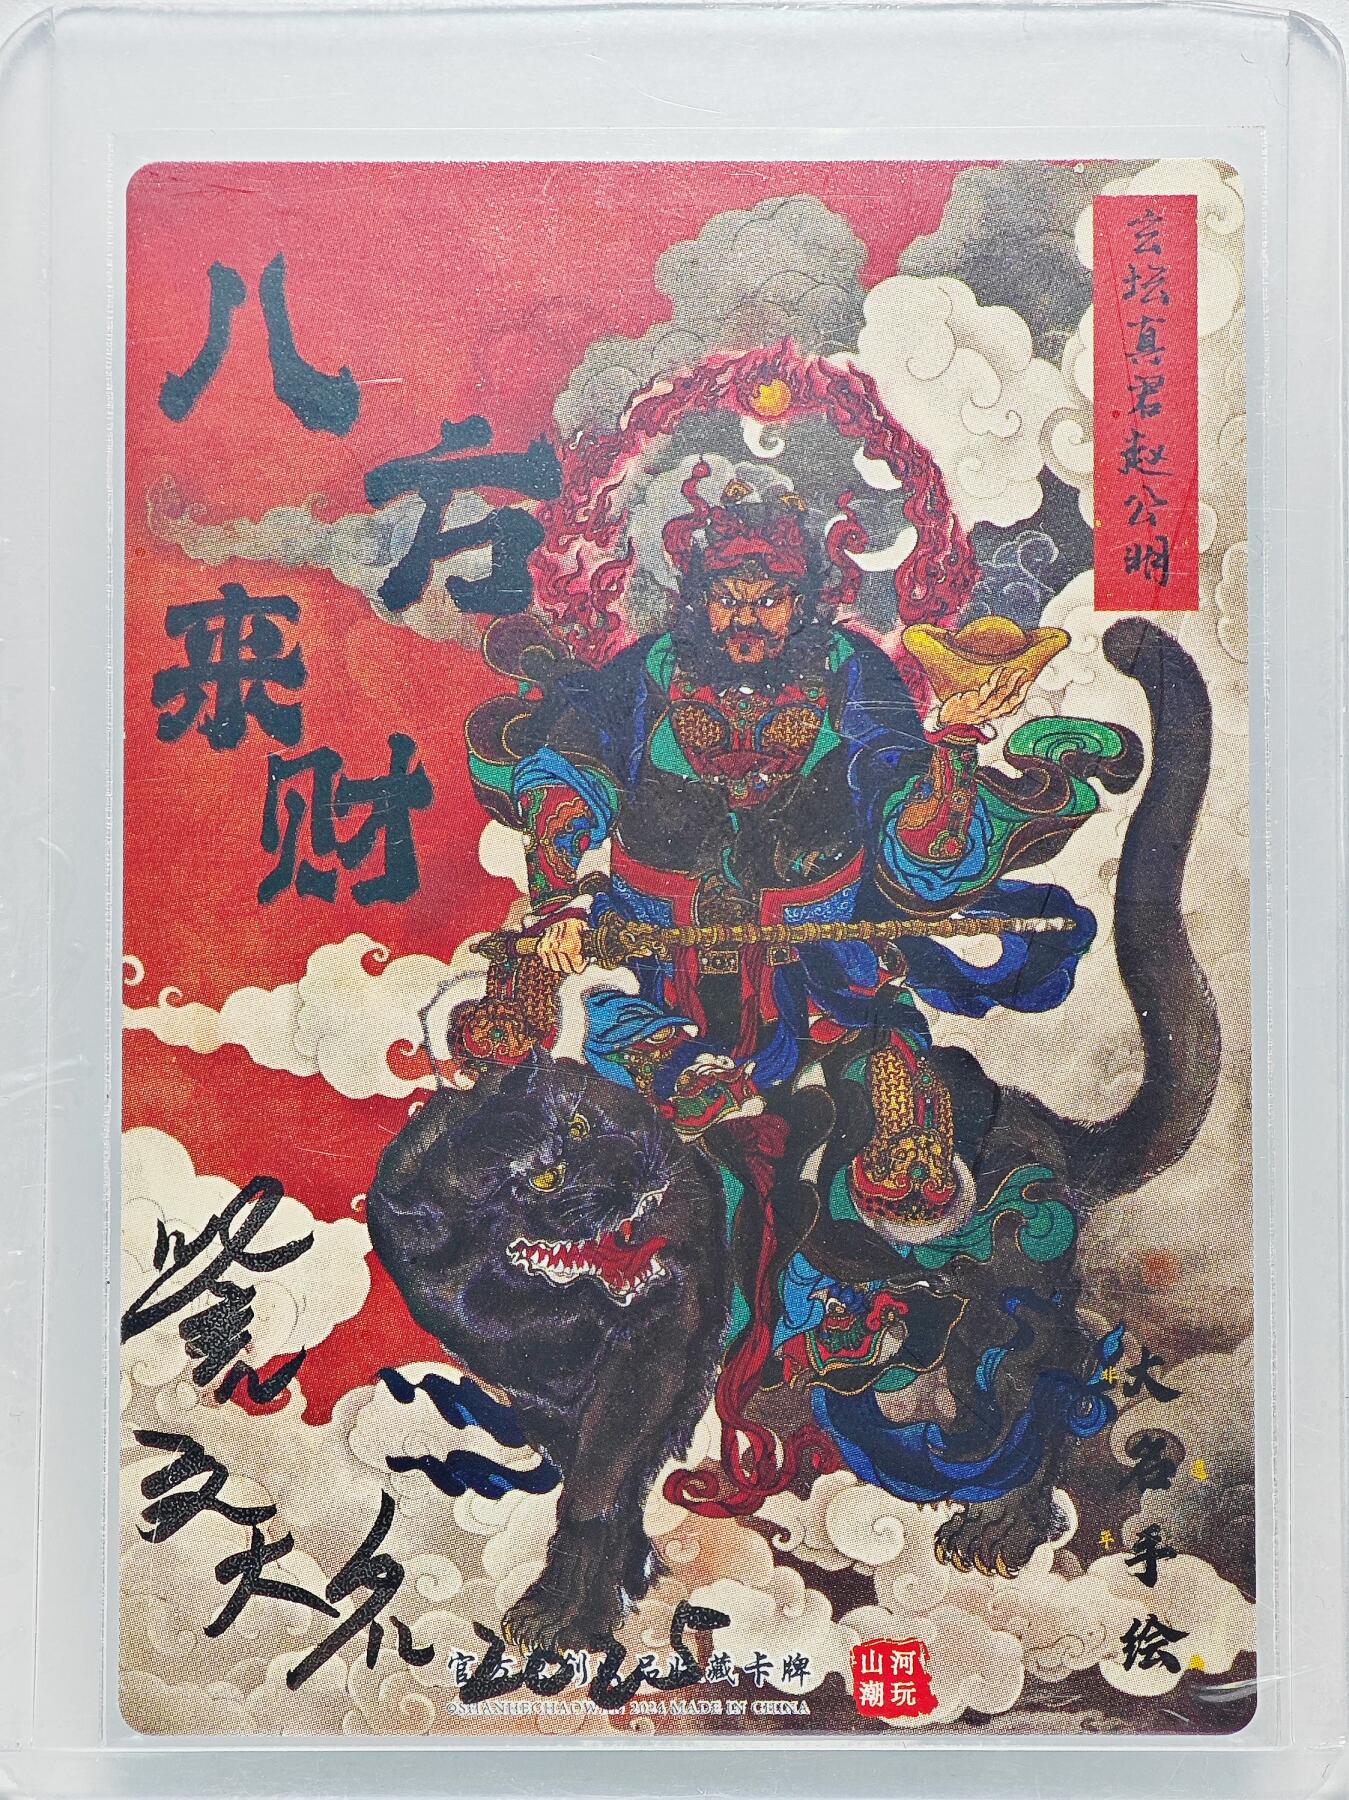 八方来财
玄坛真君赵公明
大名手绘
2025
官方原创正品收藏卡牌
©SHANHECHAOWAN 2024 MADE IN CHINA
山河
潮玩